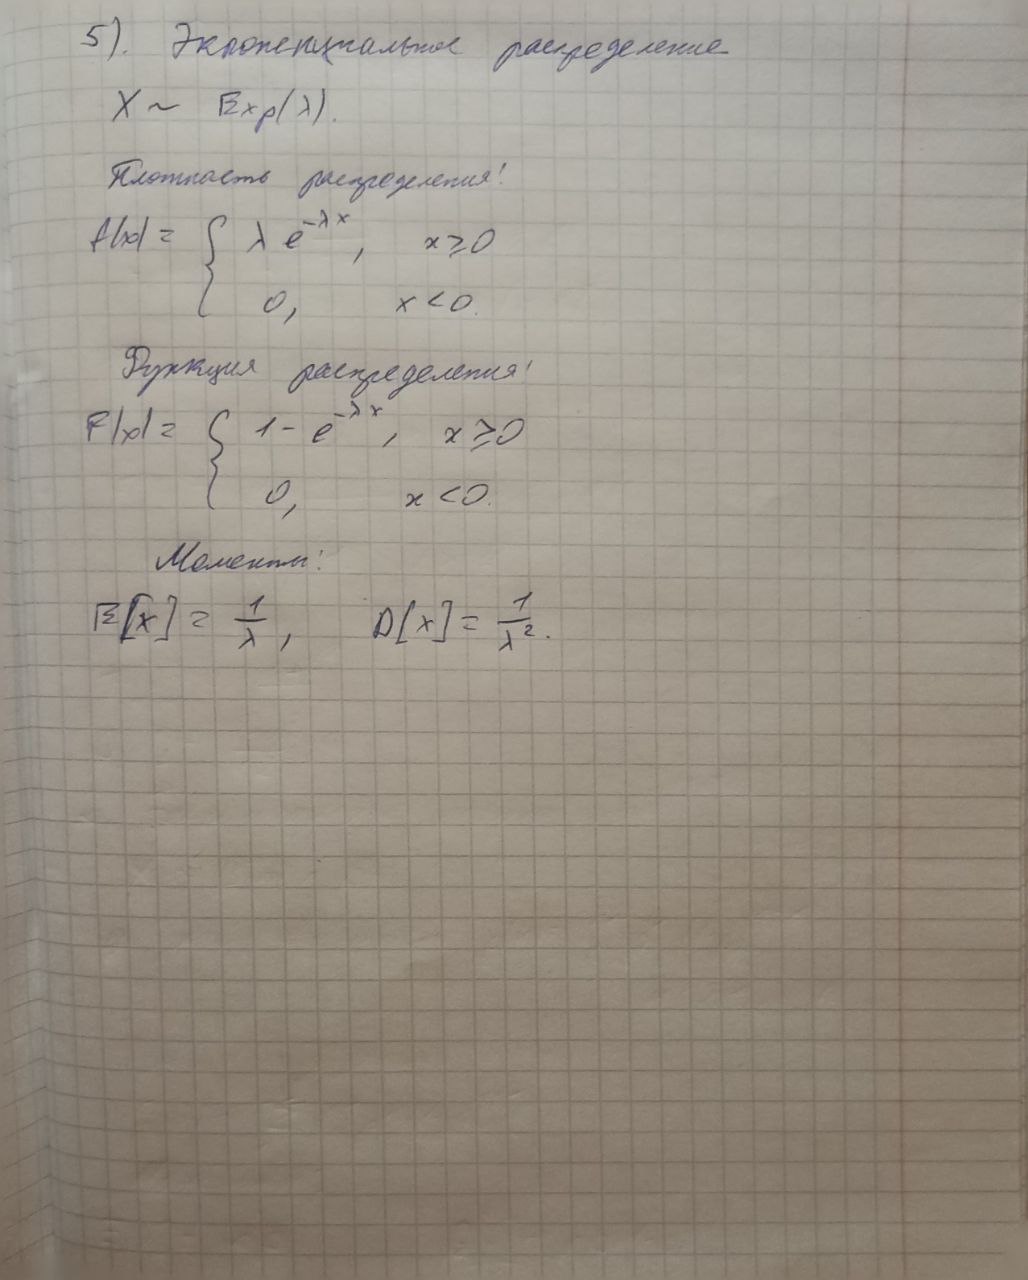 5). Экпоненциальное распределение
X ~ Exp(λ).
Плотность распределения:
f(x) = { λ e^{-λx}, x ≥ 0
0, x < 0.
Функция распределения:
F(x) = { 1 - e^{-λx}, x ≥ 0
0, x < 0.
Моменты:
E[x] = 1/λ, D[x] = 1/λ².